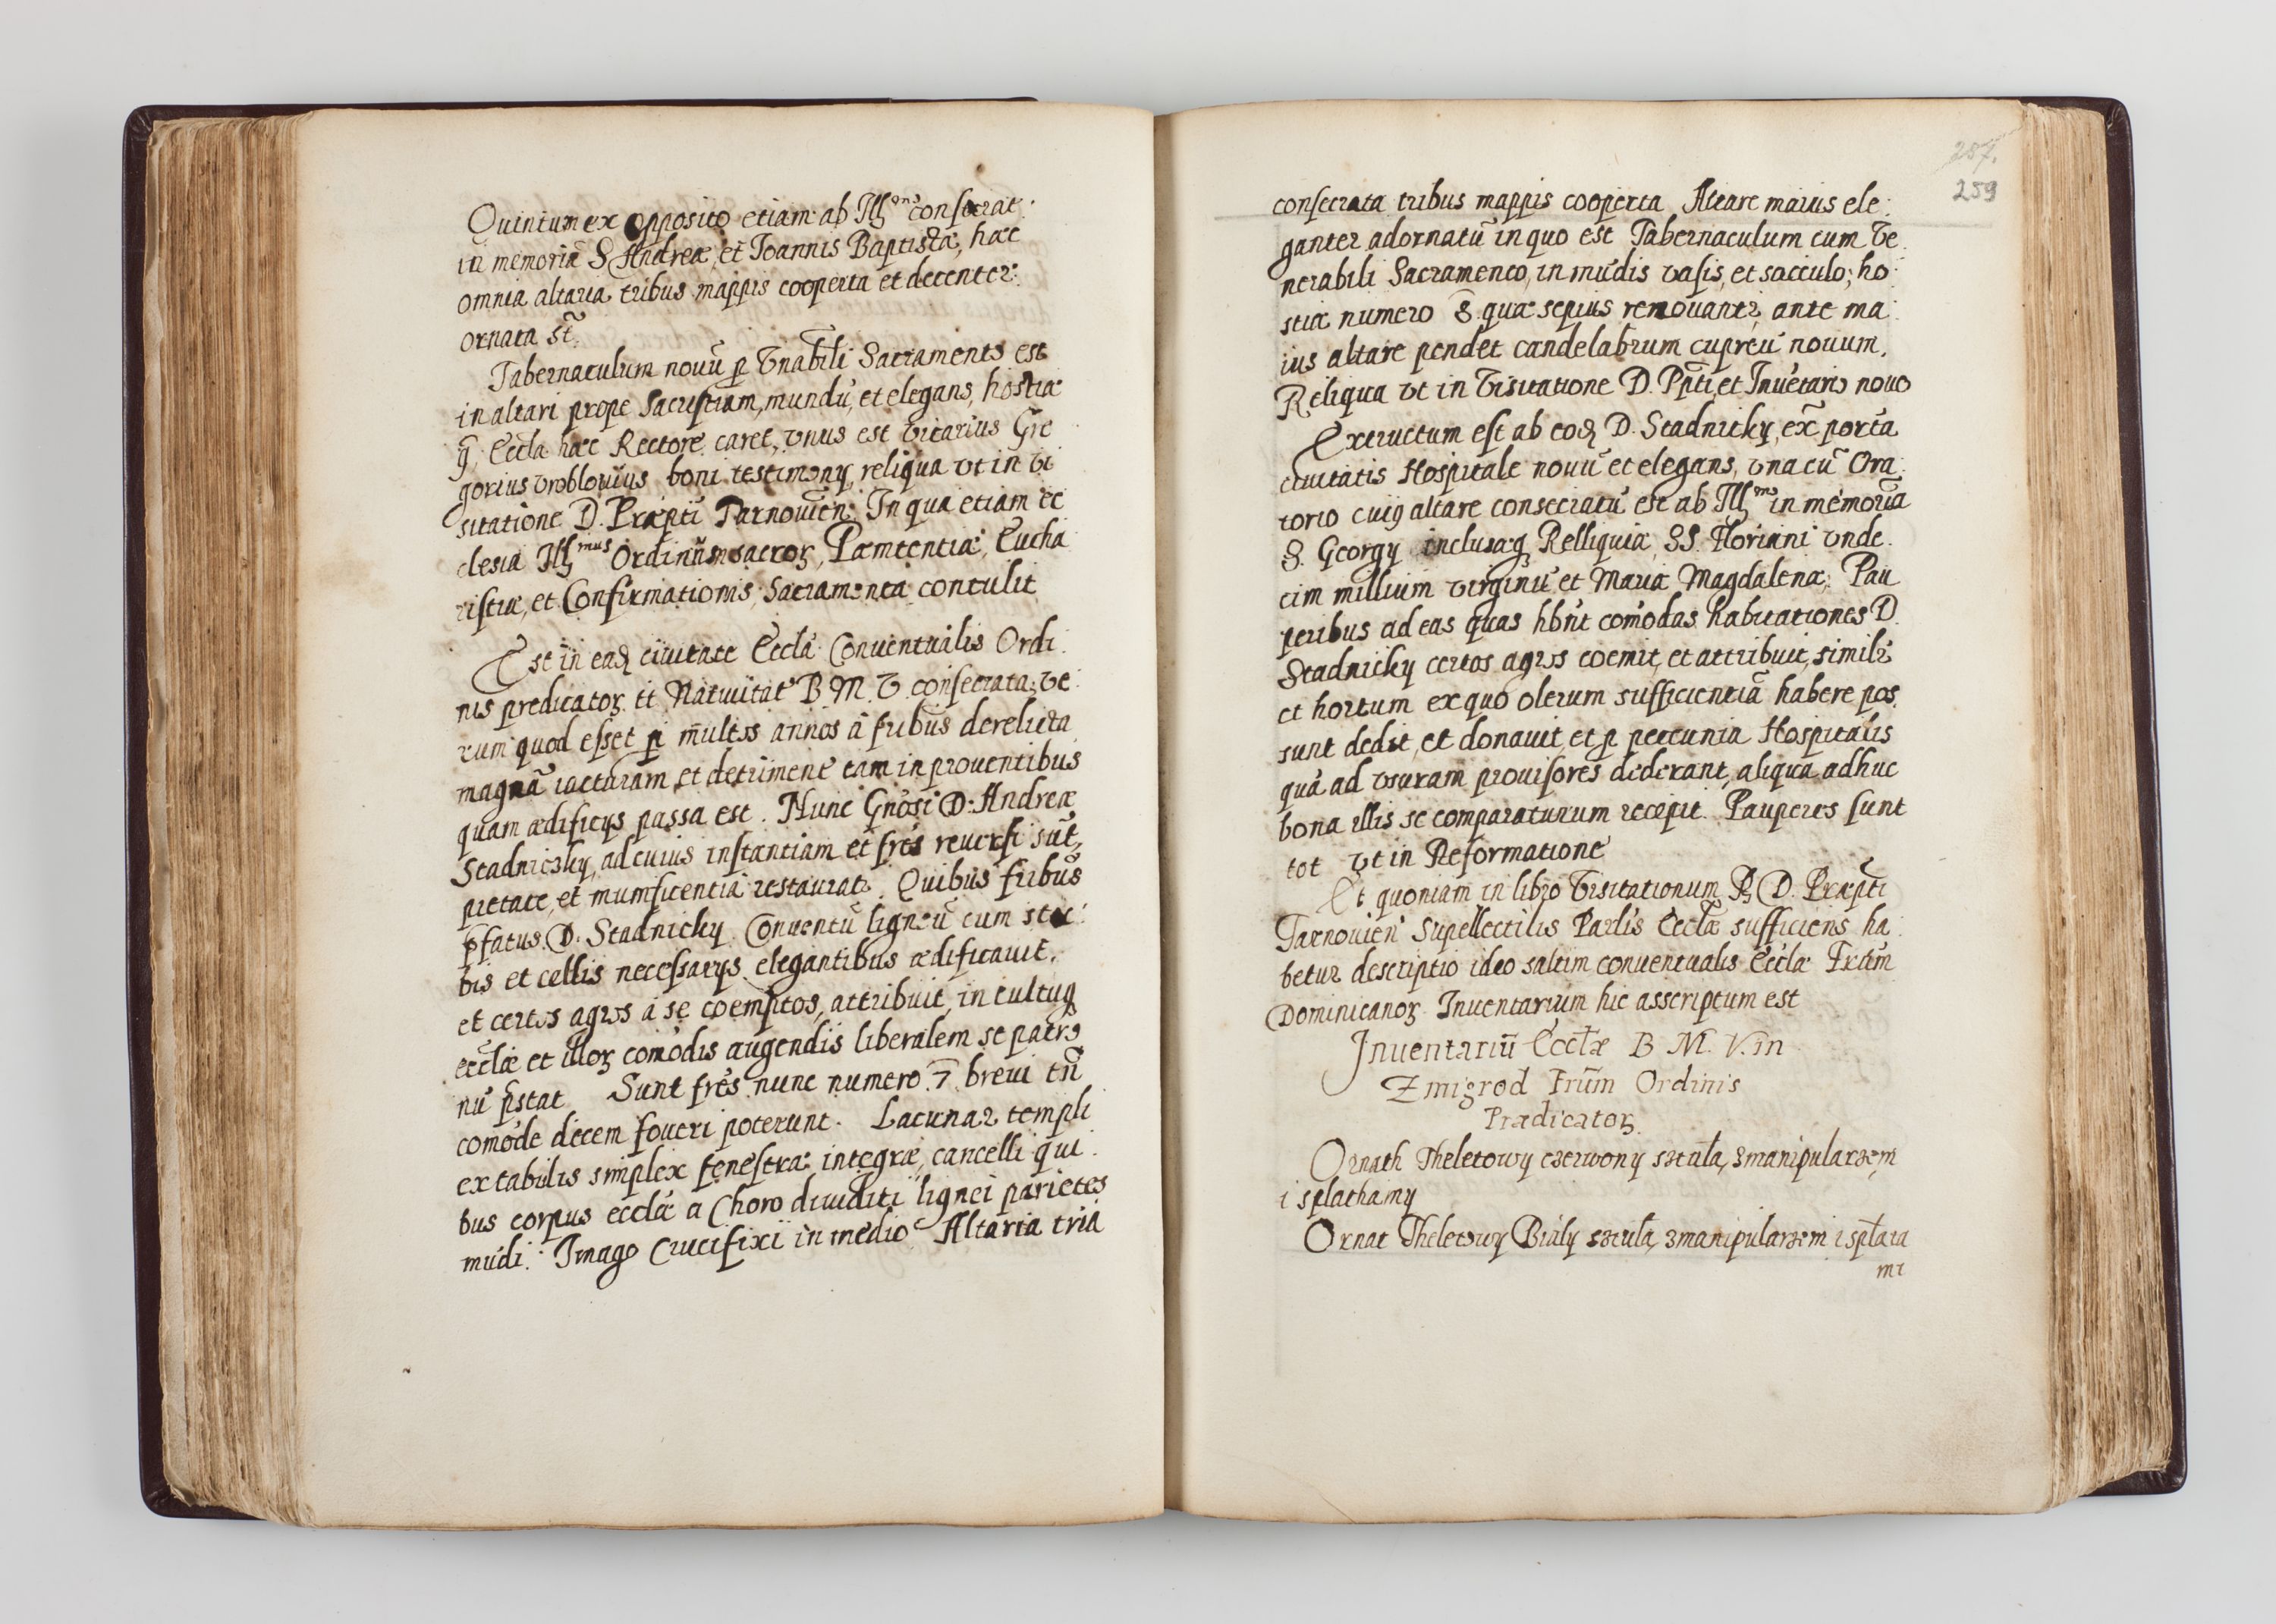 Quintum ex opposito etiam ab Illmo consecrat:
in memoriã S Andreæ, et Ioannis Baptistæ, hæc
omnia altaria tribus mappis cooperta et decenter:
ornata st̃.
Tabernaculum nouũ p Vnabili Sacramento est
in altari prope Sacristiam, mundũ, et elegans, hostiæ
9, Eccla hæc Rectore caret, vnus est vicarius Gre
gorius vroblouius boni testimony, reliqua vt in vi
sitatione D. Præpti Tarnouien: In qua etiam ec
clesia Illmus Ordinũm sacroꝝ, Pæntentiæ, Eucha
ristiæ, et Confirmationis, Sacramenta contulit
Est in eadꝫ ciuitate Eccla Conuentualis Ordi.
nis predicatoꝝ tt Natiuitat B. M. V. consecrata, ve:
rum quod esset p multos annos â fribus derelicta
magnã iacturam et detriment tam in prouentibus
quam ædificys passa est. Nunc Gnosi D. Andreæ
Stadniczky, ad cuius instantiam et frẽs reuersi sũt,
pietate, et munificentia restaurat. Quibus fribus
p̃fatus D. Stadnicky Conuentũ ligneũ cum stu:
bis et cellis necessarys elegantibus ædificauit,
et certos agros à se coemptos, attribuit, in cultuqꝫ
ecclæ et illoꝝ comodis augendis liberalem se patro
nũ p̃stat Sunt frẽs nunc numero 7 breui tñ
comode decem foueri poterunt. Lacunar templi
ex tabulis simplex fenestræ integræ, cancelli qui
bus corpus ecclæ a Choro diuiditi lignei parietes
mũdi. Imago Crucifixi in medio Altaria tria
287.
259
consecrata tribus mappis cooperta Altare maius ele:
ganter adornatũ in quo est Tabernaculum cum Ve
nerabili Sacramento, in mũdis vasis, et sacculo, ho
stiæ numero 8. quæ sepius renouantr, ante ma
ius altare pendet candelabrum cupreũ nouum.
Reliqua vt in Visitatione D. Ppti, et Inuẽtario nouo
Extructum est ab eodꝫ D. Stadnicky, ex̃ portã
ciuitatis Hospitale nouũ et elegans, vna cũ Ora
torio cuiꝰ altare consecratũ est ab Illmo in memoriã
S. Georgy inclusæqꝫ Relliquiæ SS. Floriani vnde.
cim millium virginũ et Mariæ Magdalenæ. Pau
peribus ad eas quas hbñt comodas habitationes D.
Stadnicky certos agros coemit, et attribuit, similr
et hortum ex quo olerum sufficientiã habere pos
sunt dedit, et donauit, et p peccunia Hospitalis
quã ad vsuram prouisores dederant, aliqua adhuc
bona illis se comparaturum recepit. Pauperes sunt
tot vt in Reformatione
Et quoniam in libro Visitationum R D. Præpti
Tarnouien Supellectilis Parlis Ecclæ sufficiens ha
betur descriptio ideo saltim conuentualis Ecclæ Frũm
Dominicanoꝝ Inuentarium hic asscriptum est
Inuentariũ Ecclæ B M. V. in
Zmigrod Frũm Ordinis
Prædicatoꝝ
Ornath Theletowy czerwony sztułą, zmanipularzem
i splathamy
Ornat Theletowy Biały sztułą, zmanipularzem i spłata
mi